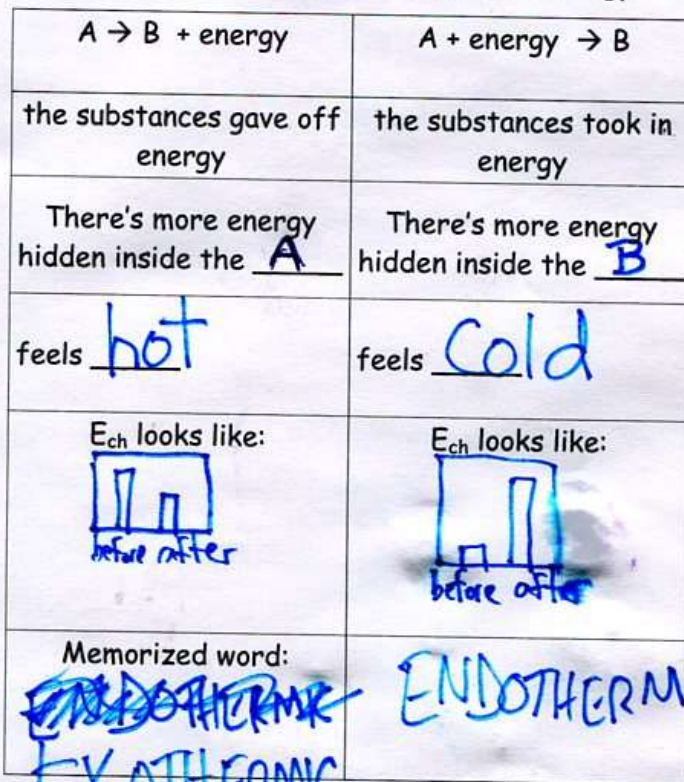 A → B + energy
A + energy → B
the substances gave off
energy
the substances took in
energy
There's more energy
hidden inside the A
There's more energy
hidden inside the B
feels hot
feels cold
Ech looks like:
before after
Ech looks like:
before after
Memorized word:
ENDOTHERMIC
EXOTHERMIC
ENDOTHERM